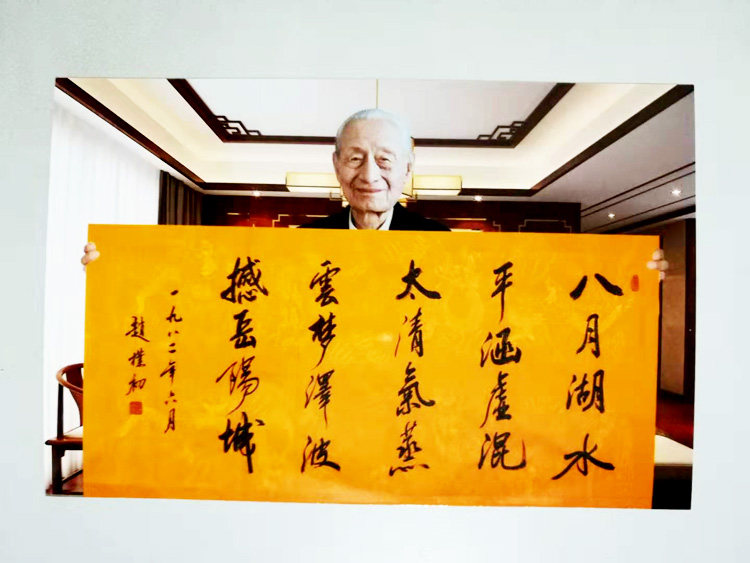 八月湖水
平涵虚混
太清氣蒸
雲梦澤波
撼岳陽城
一九八二年六月
趙樸初